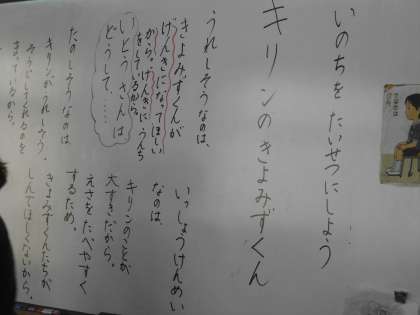 いのちを たいせつにしよう
キリンの きよみずくん
うれしそうなのは、
きよみずくんが
げんきになってほしい
から。げんきに うんち
をしているから。
いとうさんは
どうして……
たのしそうなのは
キリンが うれしそう。
いっしょうけんめい
なのは、
キリンのことが
大すきだから。
えさを たべやすく
するため。
きよみずくんたちが
しんでほしくないから。